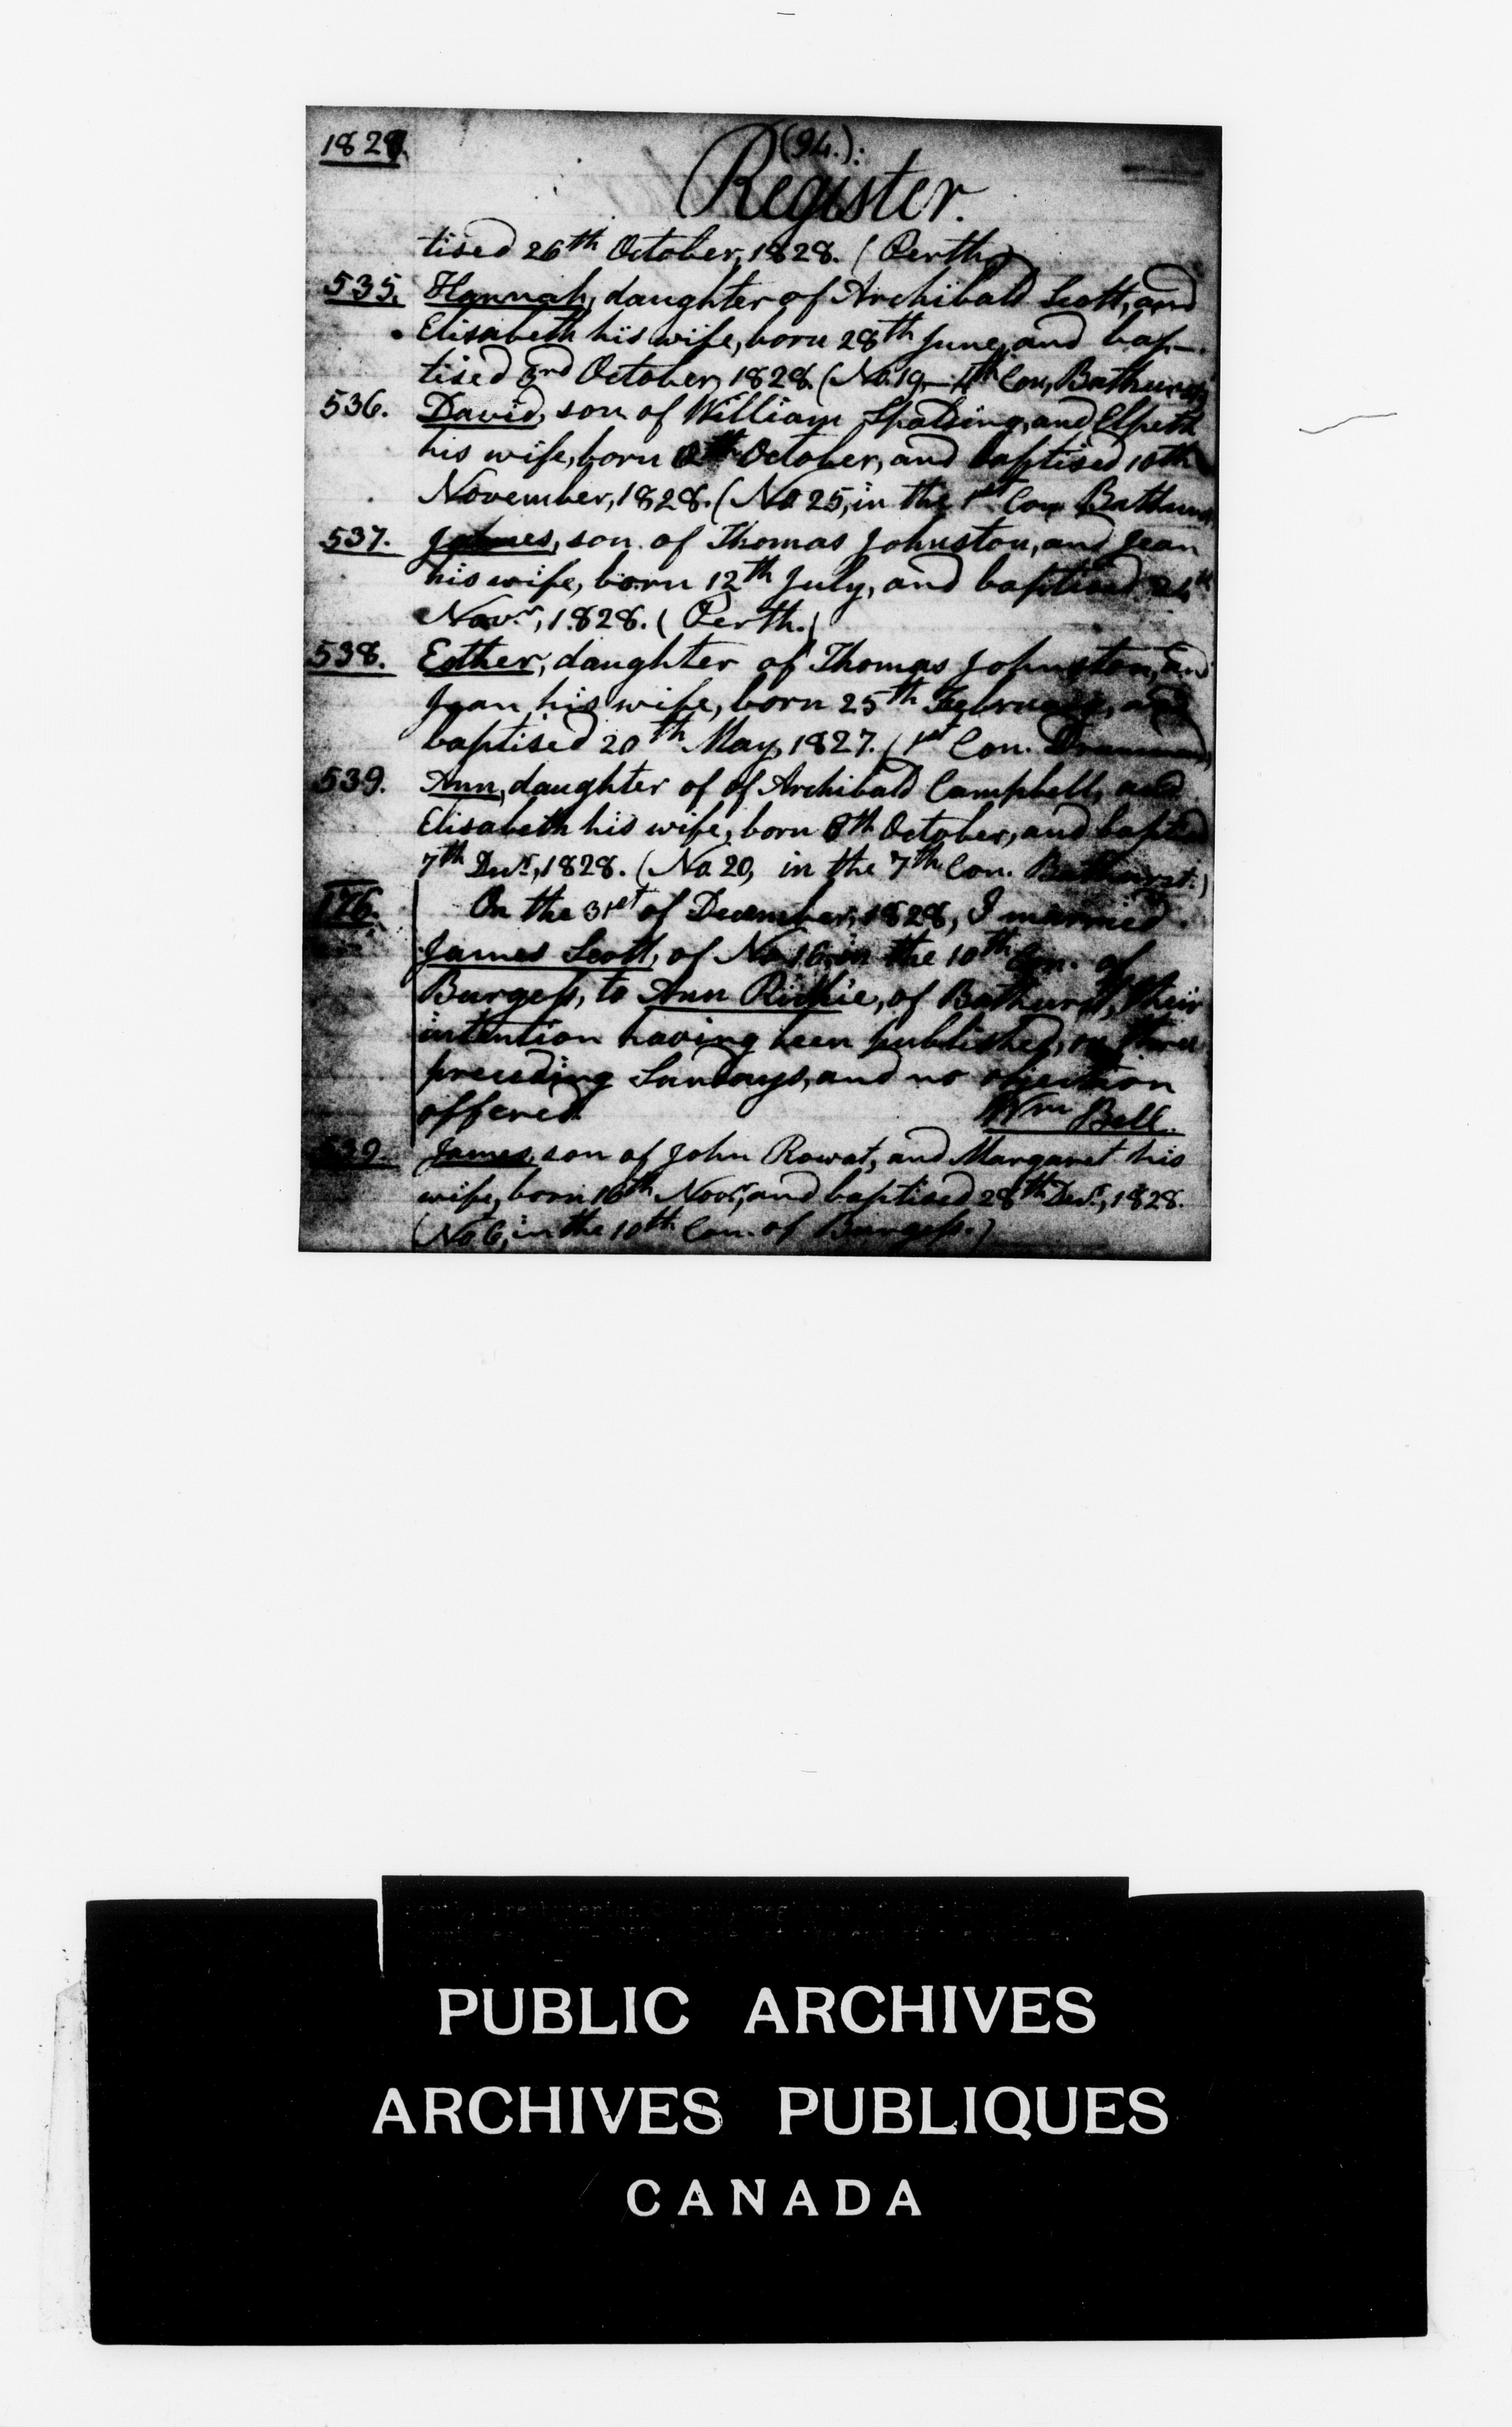 1828
(94.):
Register.
tised 26th October, 1828. (Perth)
535. Hannah, daughter of Archibald Scott, and
Elisabeth his wife, born 28th June, and bap-
tised 3rd October, 1828. (No. 19, 4th Con, Bathurst)
536. David, son of William Spalding, and Elspeth
his wife, born October, and baptised 10th
November, 1828. (No 25, in the 1st Con Bathurst
537. James, son of Thomas Johnston, and Jean
his wife, born 12th July, and baptised 24th
Novr., 1828. (Perth.)
538. Esther, daughter of Thomas Johnston, and
Jean, his wife, born 25th February, and
baptised 20th May, 1827. (1st Con. Drummond)
539. Ann, daughter of of Archibald Campbell, and
Elisabeth his wife, born 8th October, and baptised
7th Decr., 1828. (No 20, in the 7th Con. Bathurst.)
176. On the 31st of December, 1828, I married
James Scott, of No 16 in the 10th Con. of
Burgess, to Ann Richie, of Bathurst, their
intention having been published, on three
preceding Sundays, and no objection
offered. Wm Bell.
539. James, son of John Rowat, and Margaret his
wife, born 16th Novr., and baptised 28th Decr., 1828.
(No 6, in the 10th Con. of Burgess.)
PUBLIC ARCHIVES
ARCHIVES PUBLIQUES
CANADA